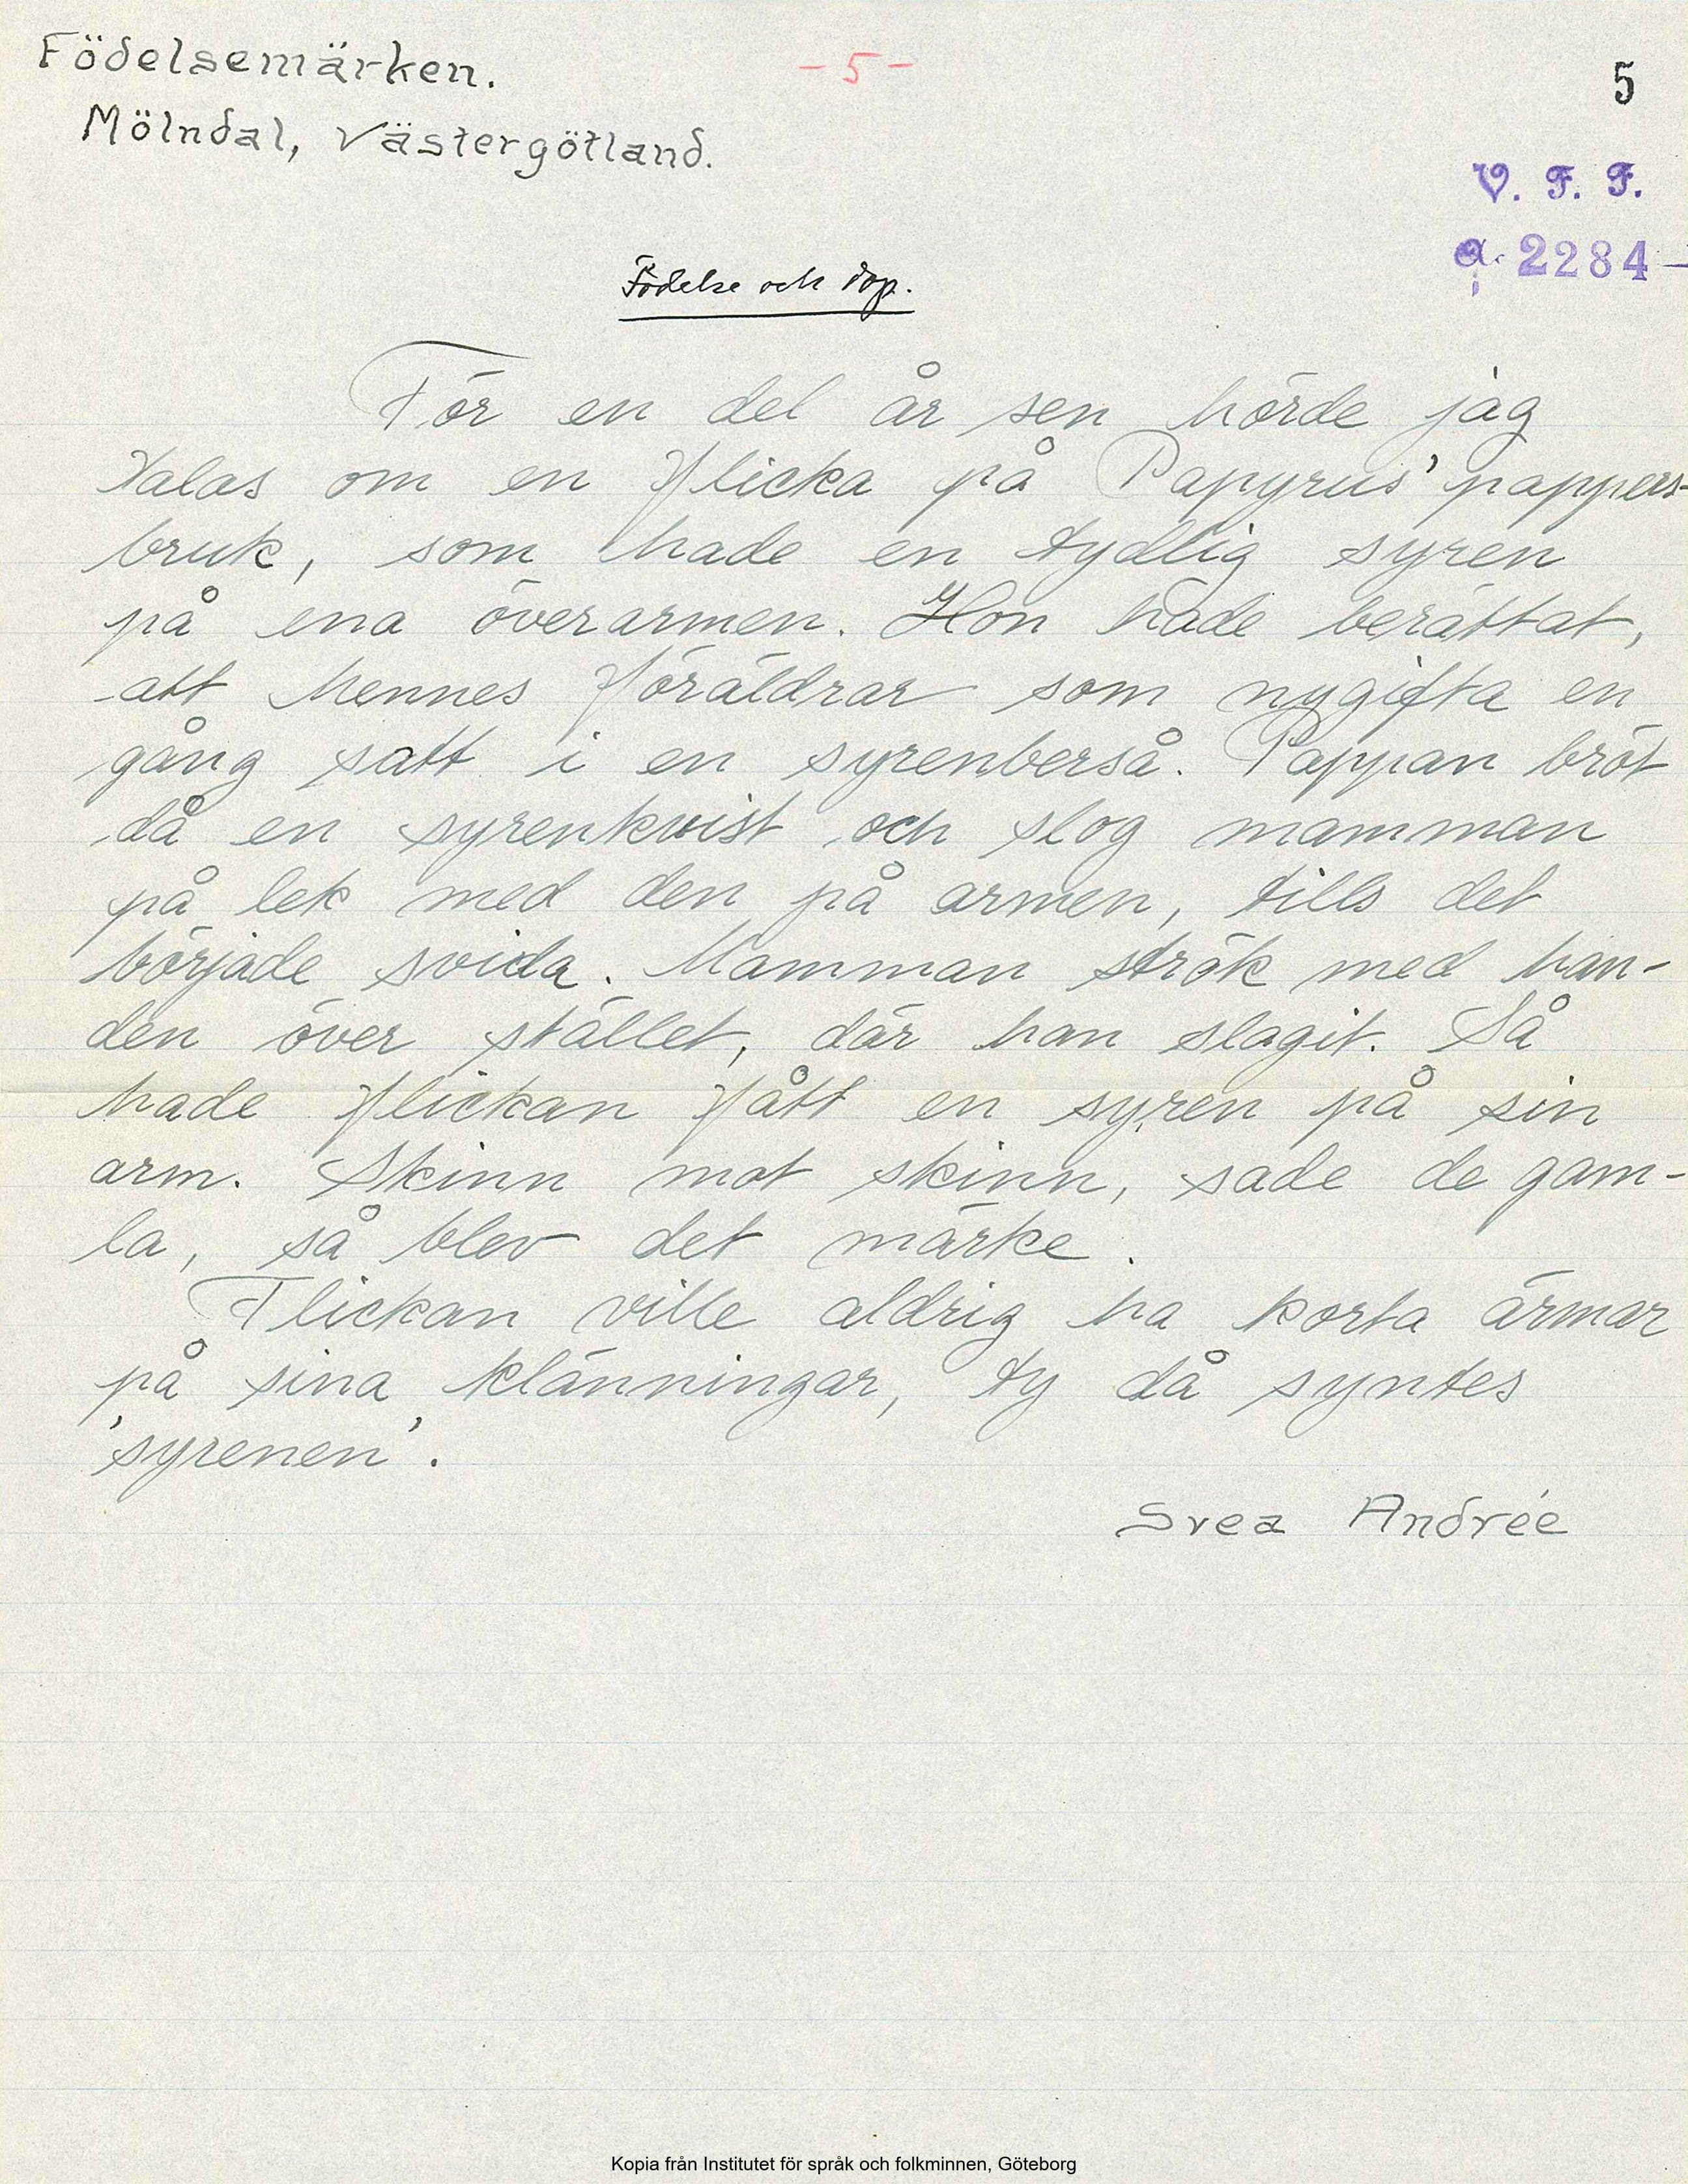 Födelsemärken.
- 5 -
5
Mölndal, Västergötland.
V. F. F.
a. 2284
Födelse och dop.
För en del år sen hörde jag
talas om en flicka på Papyrus' pappers-
bruk, som hade en tydlig syren
på ena överarmen. Hon hade berättat,
att hennes föräldrar som nygifta en
gång satt i en syrenberså. Pappan bröt
då en syrenkvist och slog mamman
på lek med den på armen, tills det
började svida. Mamman strök med han-
den över stället, där han slagit. Så
hade flickan fått en syren på sin
arm. Skinn mot skinn, sade de gam-
la, så blev det märke.
Flickan ville aldrig ha korta ärmar
på sina klänningar, ty då syntes
'syrenen'.
Svea Andrée
Kopia från Institutet för språk och folkminnen, Göteborg